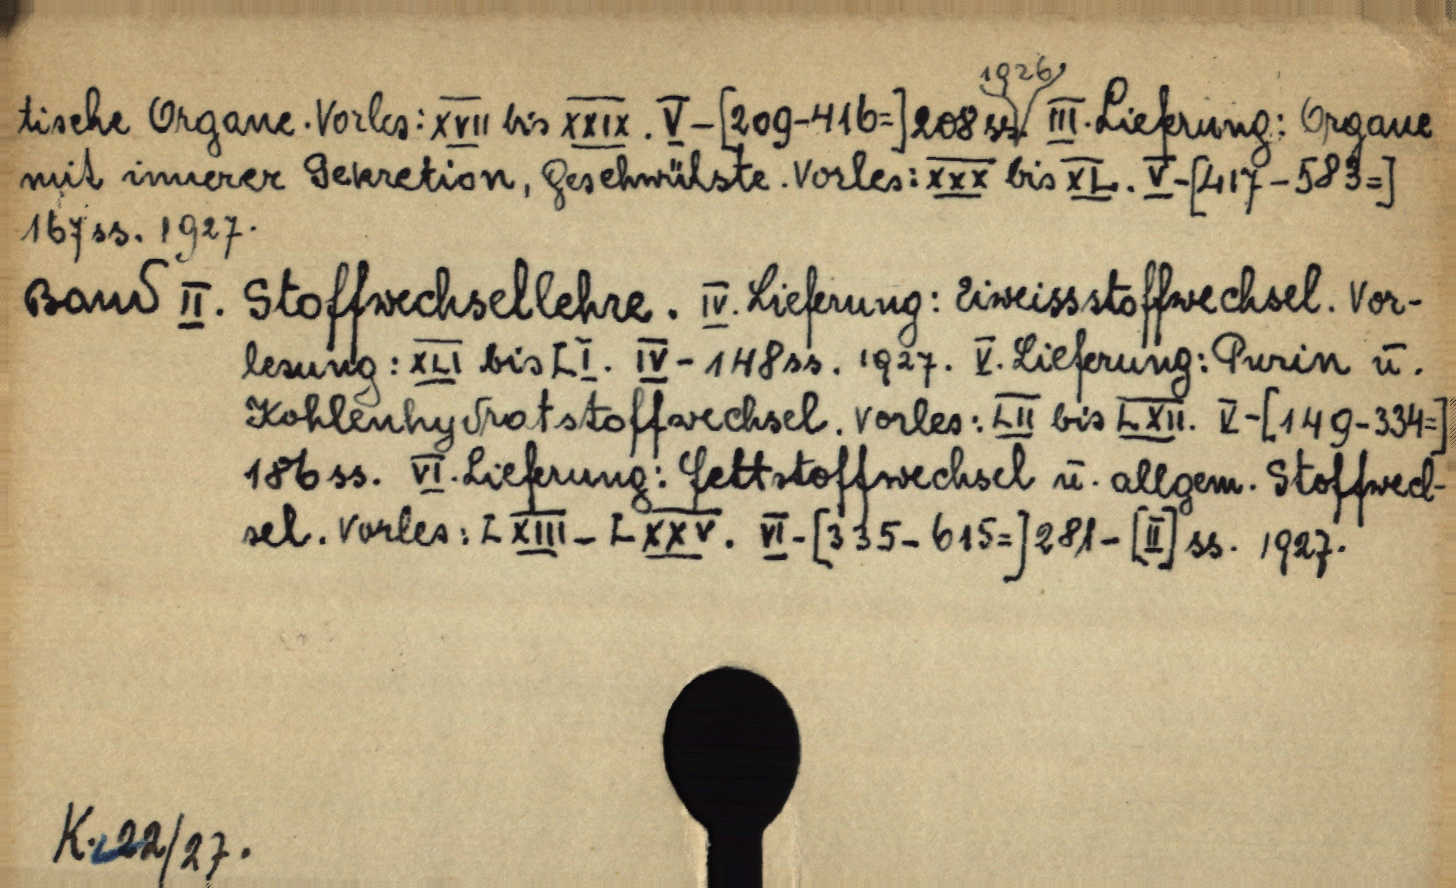 1926
tische Organe. Vorles: XVII bis XXIX. V - [209-416=] 208 ss. III. Lieferung: Organe
mit innerer Sekretion, Geschwülste. Vorles: XXX bis XL. V - [417-583=]
167 ss. 1927.
Band II. Stoffwechsellehre. IV. Lieferung: Eiweissstoffwechsel. Vor-
lesung: XLI bis LI. IV - 148 ss. 1927. V. Lieferung: Purin u.
Kohlenhydratstoffwechsel. Vorles: LII bis LXII. V - [149-334=]
186 ss. VI. Lieferung: Fettstoffwechsel u. allgem. Stoffwech-
sel. Vorles: LXIII - LXXV. VI - [335-615=] 281 - [II] ss. 1927.
K. 22/27.